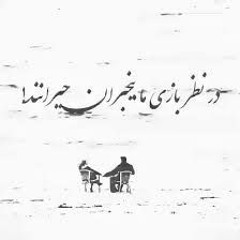 در نظربازی ما بیخبران حیرانند!